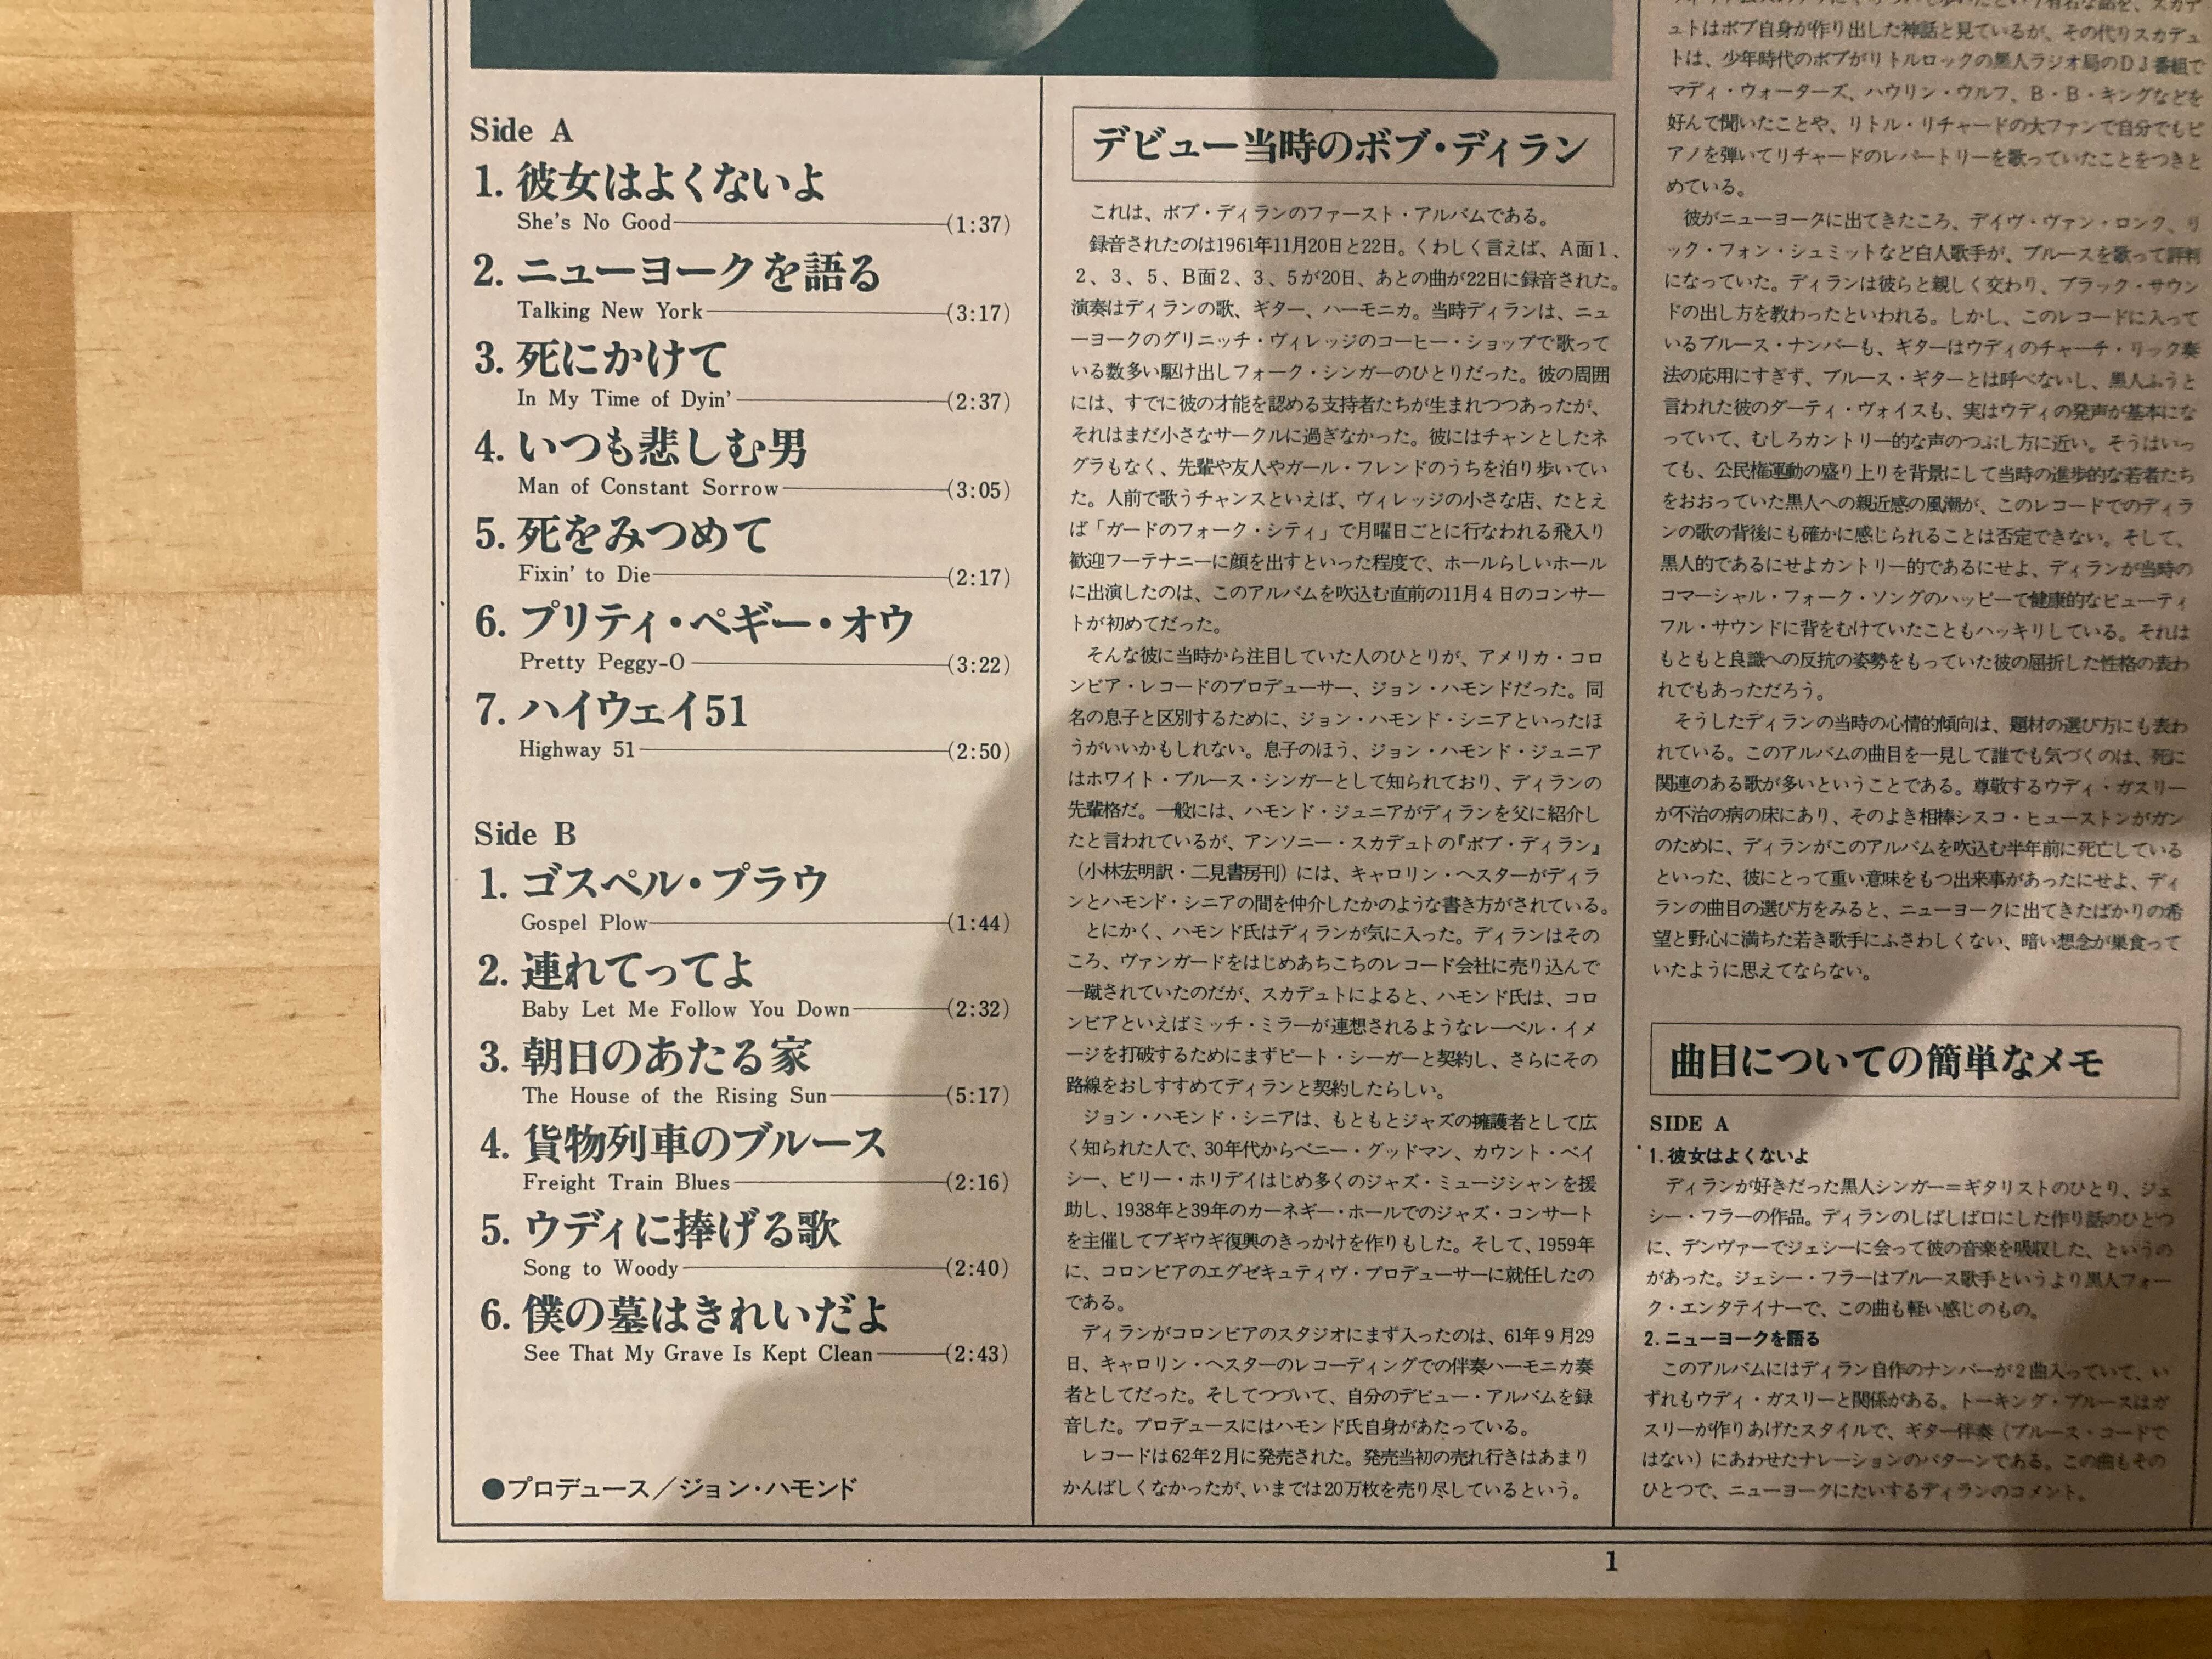 Side A
1. 彼女はよくないよ
She's No Good (1:37)
2. ニューヨークを語る
Talking New York (3:17)
3. 死にかけて
In My Time of Dyin' (2:37)
4. いつも悲しむ男
Man of Constant Sorrow (3:05)
5. 死をみつめて
Fixin' to Die (2:17)
6. プリティ・ペギー・オウ
Pretty Peggy-O (3:22)
7. ハイウェイ51
Highway 51 (2:50)
Side B
1. ゴスペル・プラウ
Gospel Plow (1:44)
2. 連れてってよ
Baby Let Me Follow You Down (2:32)
3. 朝日のあたる家
The House of the Rising Sun (5:17)
4. 貨物列車のブルース
Freight Train Blues (2:16)
5. ウディに捧げる歌
Song to Woody (2:40)
6. 僕の墓はきれいだよ
See That My Grave Is Kept Clean (2:43)
●プロデュース／ジョン・ハモンド
デビュー当時のボブ・ディラン
これは、ボブ・ディランのファースト・アルバムである。
録音されたのは1961年11月20日と22日。くわしく言えば、A面1、
2、3、5、B面2、3、5が20日、あとの曲が22日に録音された。
演奏はディランの歌、ギター、ハーモニカ。当時ディランは、ニュ
ーヨークのグリニッチ・ヴィレッジのコーヒー・ショップで歌って
いる数多い駆け出しフォーク・シンガーのひとりだった。彼の周囲
には、すでに彼の才能を認める支持者たちが生まれつつあったが、
それはまだ小さなサークルに過ぎなかった。彼にはチャンとしたネ
グラもなく、先輩や友人やガール・フレンドのうちを泊り歩いてい
た。人前で歌うチャンスといえば、ヴィレッジの小さな店、たとえ
ば「ガードのフォーク・シティ」で月曜日ごとに行なわれる飛入り
歓迎フーテナニーに顔を出すといった程度で、ホールらしいホール
に出演したのは、このアルバムを吹込む直前の11月4日のコンサー
トが初めてだった。
そんな彼に当時から注目していた人のひとりが、アメリカ・コロ
ンビア・レコードのプロデューサー、ジョン・ハモンドだった。同
名の息子と区別するために、ジョン・ハモンド・シニアといったほ
うがいいかもしれない。息子のほう、ジョン・ハモンド・ジュニア
はホワイト・ブルース・シンガーとして知られており、ディランの
先輩格だ。一般には、ハモンド・ジュニアがディランを父に紹介し
たと言われているが、アンソニー・スカデュトの『ボブ・ディラン』
（小林宏明訳・二見書房刊）には、キャロリン・ヘスターがディラ
ンとハモンド・シニアの間を仲介したかのような書き方がされている。
とにかく、ハモンド氏はディランが気に入った。ディランはその
ころ、ヴァンガードをはじめあちこちのレコード会社に売り込んで
一蹴されていたのだが、スカデュトによると、ハモンド氏は、コロ
ンビアといえばミッチ・ミラーが連想されるようなレーベル・イメ
ージを打破するためにまずピート・シーガーと契約し、さらにその
路線をおしすすめてディランと契約したらしい。
ジョン・ハモンド・シニアは、もともとジャズの擁護者として広
く知られた人で、30年代からベニー・グッドマン、カウント・ベイ
シー、ビリー・ホリデイはじめ多くのジャズ・ミュージシャンを援
助し、1938年と39年のカーネギー・ホールでのジャズ・コンサート
を主催してブギウギ復興のきっかけを作りもした。そして、1959年
に、コロンビアのエグゼキュティヴ・プロデューサーに就任したの
である。
ディランがコロンビアのスタジオにまず入ったのは、61年9月29
日、キャロリン・ヘスターのレコーディングでの伴奏ハーモニカ奏
者としてだった。そしてつづいて、自分のデビュー・アルバムを録
音した。プロデュースにはハモンド氏自身があたっている。
レコードは62年2月に発売された。発売当初の売れ行きはあまり
かんばしくなかったが、いまでは20万枚を売り尽しているという。
ュトはボブ自身が作り出した神話と見ているが、その代りスカデュ
トは、少年時代のボブがリトルロックの黒人ラジオ局のDJ番組で
マディ・ウォーターズ、ハウリン・ウルフ、B・B・キングなどを
好んで聞いたことや、リトル・リチャードの大ファンで自分でもピ
アノを弾いてリチャードのレパートリーを歌っていたことをつきと
めている。
彼がニューヨークに出てきたころ、デイヴ・ヴァン・ロンク、リ
ック・フォン・シュミットなど白人歌手が、ブルースを歌って評判
になっていた。ディランは彼らと親しく交わり、ブラック・サウン
ドの出し方を教わったといわれる。しかし、このレコードに入って
いるブルース・ナンバーも、ギターはウディのチャーチ・リック奏
法の応用にすぎず、ブルース・ギターとは呼べないし、黒人ふうと
言われた彼のダーティ・ヴォイスも、実はウディの発声が基本にな
っていて、むしろカントリー的な声のつぶし方に近い。そうはいっ
ても、公民権運動の盛り上りを背景にして当時の進歩的な若者たち
をおおっていた黒人への親近感の風潮が、このレコードでのディラ
ンの歌の背後にも確かに感じられることは否定できない。そして、
黒人的であるにせよカントリー的であるにせよ、ディランが当時の
コマーシャル・フォーク・ソングのハッピーで健康的なビューティ
フル・サウンドに背をむけていたこともハッキリしている。それは
もともと良識への反抗の姿勢をもっていた彼の屈折した性格の表わ
れでもあっただろう。
そうしたディランの当時の心情的傾向は、題材の選び方にも表わ
れている。このアルバムの曲目を一見して誰でも気づくのは、死に
関連のある歌が多いということである。尊敬するウディ・ガスリー
が不治の病の床にあり、そのよき相棒シスコ・ヒューストンがガン
のために、ディランがこのアルバムを吹込む半年前に死亡している
といった、彼にとって重い意味をもつ出来事があったにせよ、ディ
ランの曲目の選び方をみると、ニューヨークに出てきたばかりの希
望と野心に満ちた若き歌手にふさわしくない、暗い想念が巣食って
いたように思えてならない。
曲目についての簡単なメモ
SIDE A
1.彼女はよくないよ
ディランが好きだった黒人シンガー＝ギタリストのひとり、ジェ
シー・フラーの作品。ディランのしばしば口にした作り話のひとつ
に、デンヴァーでジェシーに会って彼の音楽を吸収した、というの
があった。ジェシー・フラーはブルース歌手というより黒人フォー
ク・エンタテイナーで、この曲も軽い感じのもの。
2.ニューヨークを語る
このアルバムにはディラン自作のナンバーが2曲入っていて、い
ずれもウディ・ガスリーと関係がある。トーキング・ブルースはガ
スリーが作りあげたスタイルで、ギター伴奏（ブルース・コードで
はない）にあわせたナレーションのパターンである。この曲もその
ひとつで、ニューヨークにたいするディランのコメント。
1